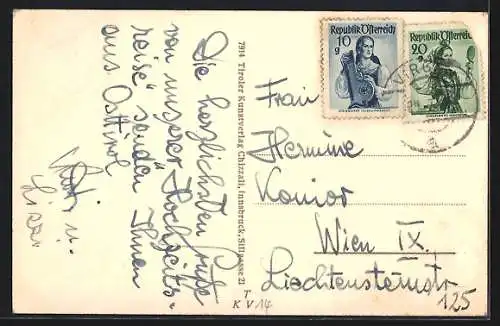 Die herzlichsten Grüße
von unserer „Hochzeits-
reise" senden Ihnen
aus Osttirol
u.
7914 Tiroler Kunstverlag Chizzali, Innsbruck, Sillgasse 21
T
K V 14
Republik Österreich
10
g
Republik Österreich
20
Frau
Hermine
Wien IX.
Liechtensteinstr
125